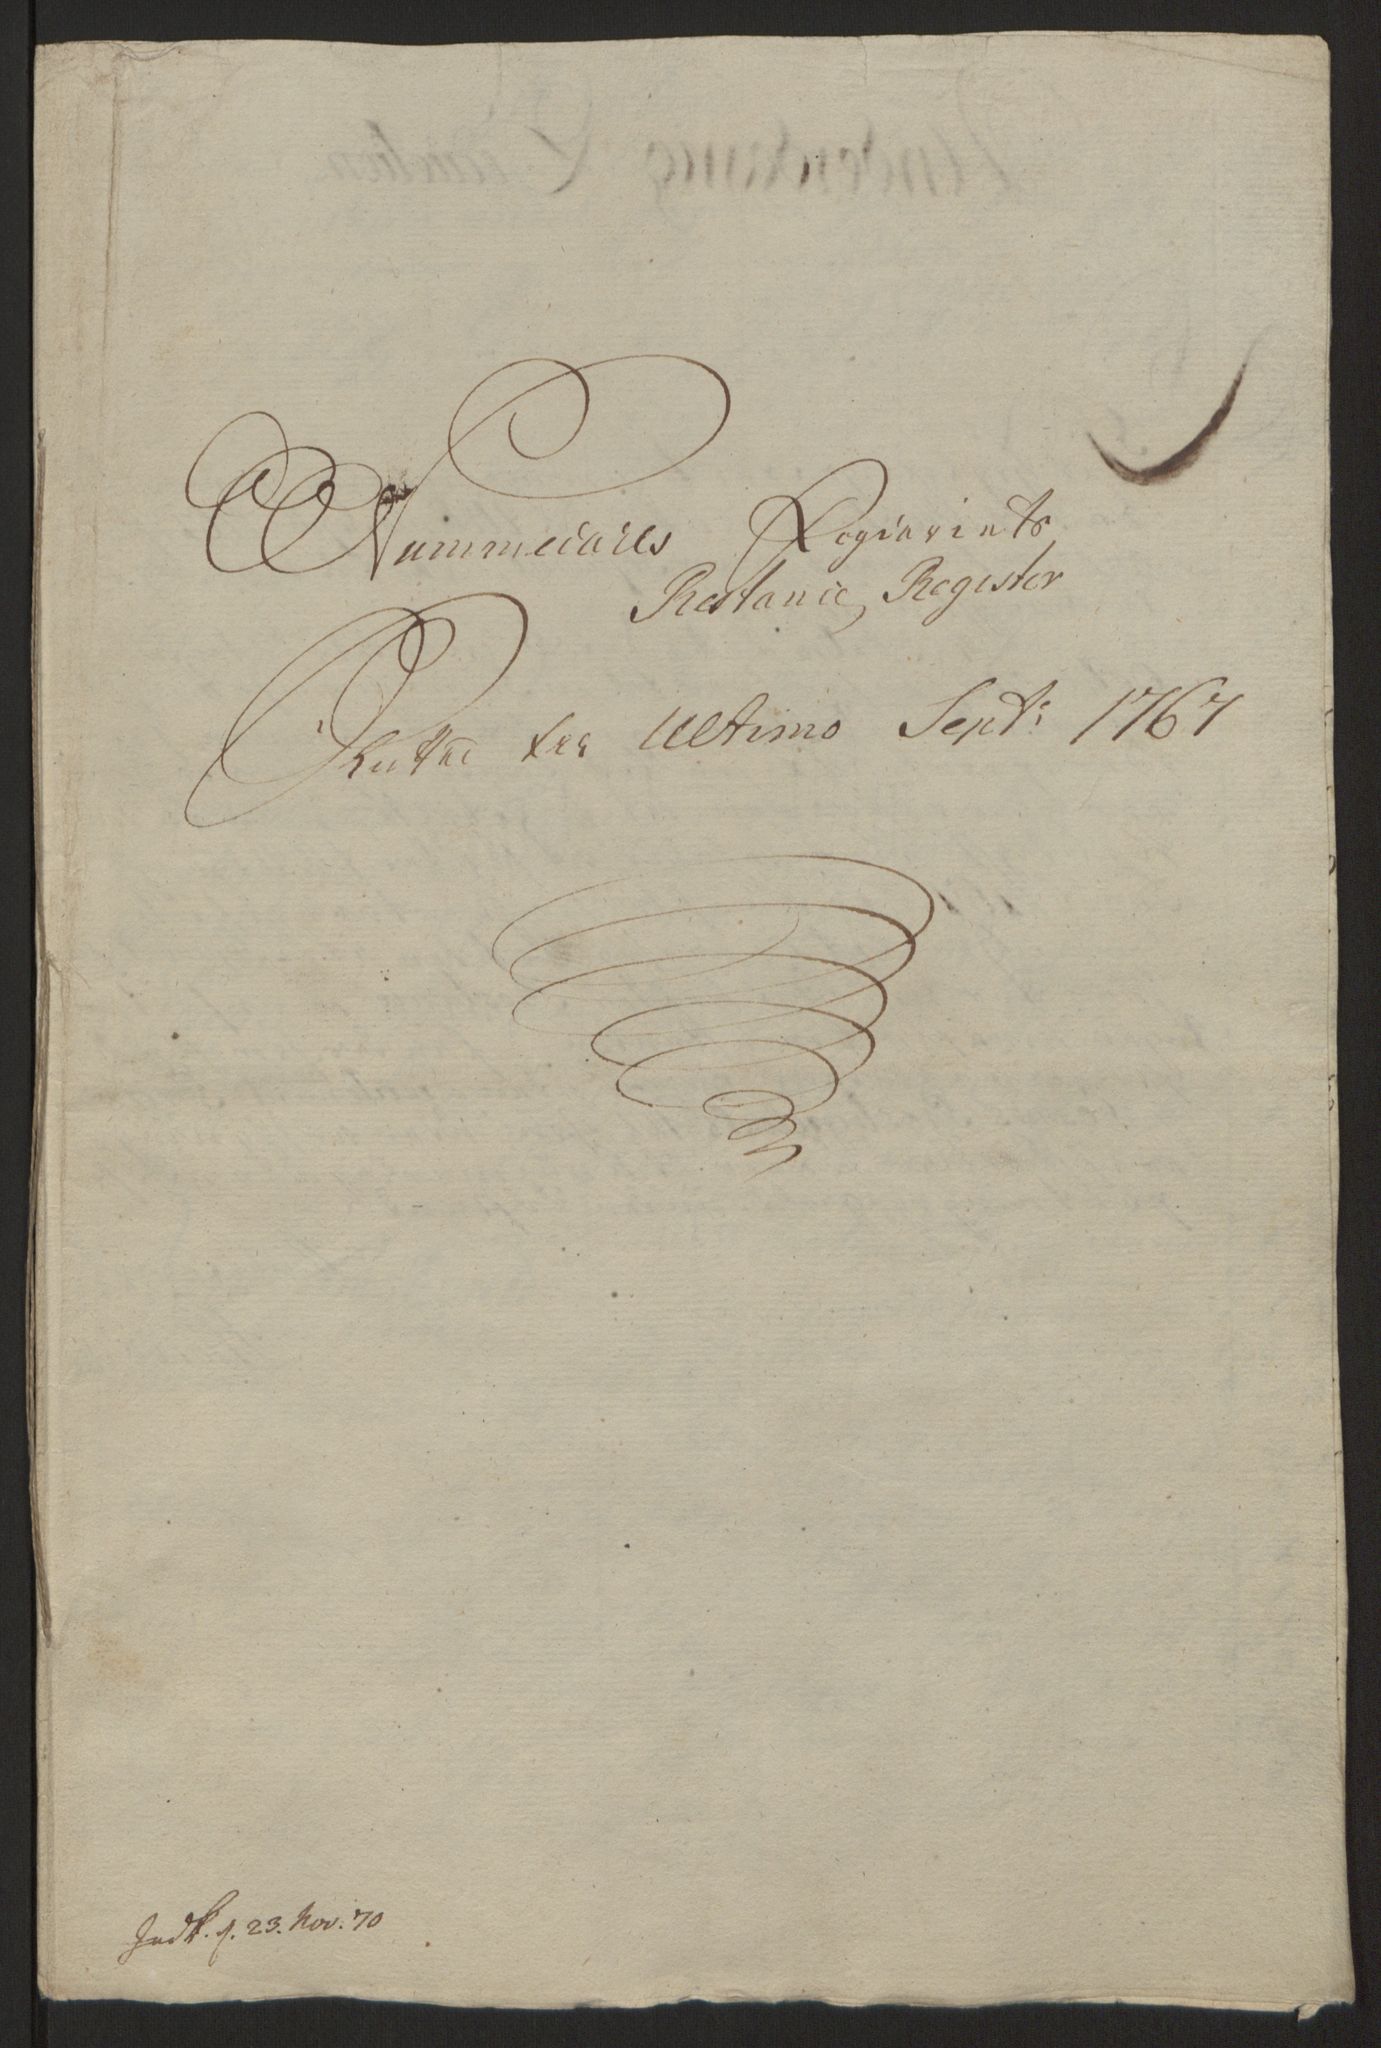 Nummedals Fogderiets
Restance Register
Sluttet til Ultimo Septr: 1767
Indk. d. 23. Nov. 70